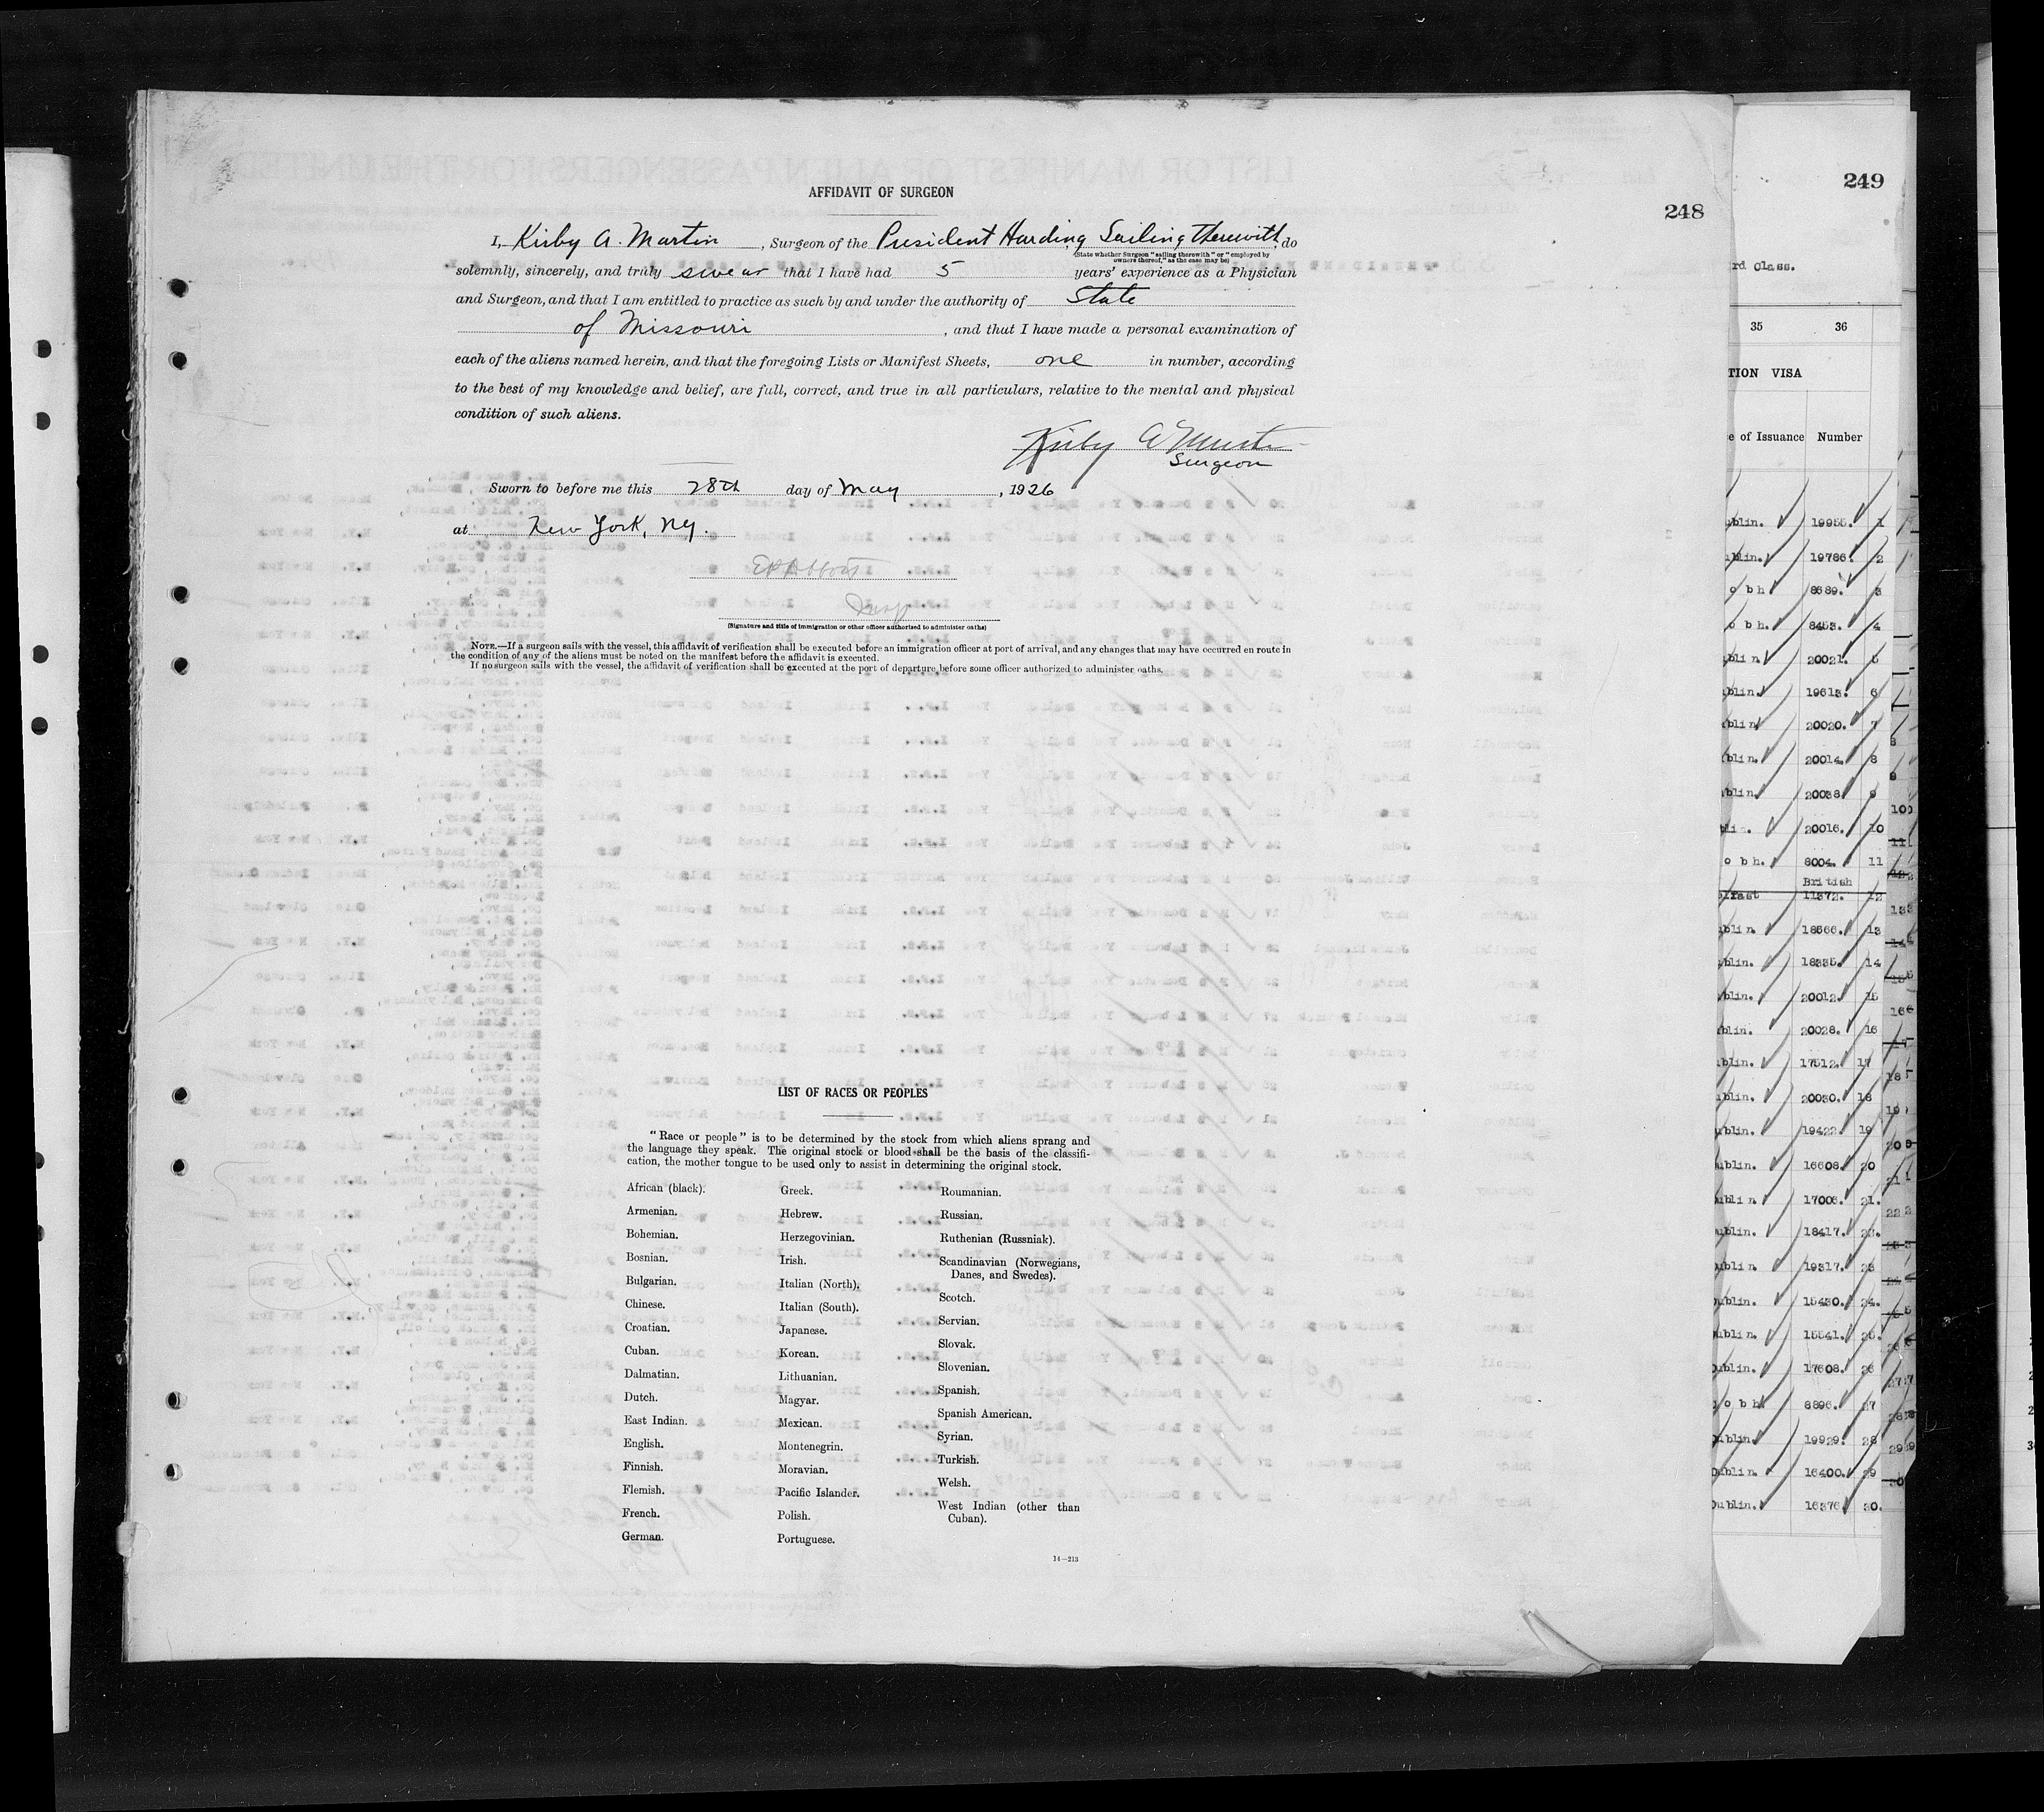 AFFIDAVIT OF SURGEON
248
I, Kirby A. Martin, Surgeon of the President Harding Sailing therewith, do
(State whether Surgeon "sailing therewith" or "employed by
owners thereof," as the case may be)
solemnly, sincerely, and truly swear that I have had 5 years' experience as a Physician
and Surgeon, and that I am entitled to practice as such by and under the authority of State
of Missouri, and that I have made a personal examination of
each of the aliens named herein, and that the foregoing Lists or Manifest Sheets, one in number, according
to the best of my knowledge and belief, are full, correct, and true in all particulars, relative to the mental and physical
condition of such aliens.
Kirby A Martin
Surgeon
Sworn to before me this 28th day of May, 1926
at New York, NY.
Insp
(Signature and title of immigration or other officer authorized to administer oaths)
NOTE.—If a surgeon sails with the vessel, this affidavit of verification shall be executed before an immigration officer at port of arrival, and any changes that may have occurred en route in
the condition of any of the aliens must be noted on the manifest before the affidavit is executed.
If no surgeon sails with the vessel, the affidavit of verification shall be executed at the port of departure before some officer authorized to administer oaths.
LIST OF RACES OR PEOPLES
"Race or people" is to be determined by the stock from which aliens sprang and
the language they speak. The original stock or blood shall be the basis of the classifi-
cation, the mother tongue to be used only to assist in determining the original stock.
African (black).
Armenian.
Bohemian.
Bosnian.
Bulgarian.
Chinese.
Croatian.
Cuban.
Dalmatian.
Dutch.
East Indian.
English.
Finnish.
Flemish.
French.
German.
Greek.
Hebrew.
Herzegovinian.
Irish.
Italian (North).
Italian (South).
Japanese.
Korean.
Lithuanian.
Magyar.
Mexican.
Montenegrin.
Moravian.
Pacific Islander.
Polish.
Portuguese.
Roumanian.
Russian.
Ruthenian (Russniak).
Scandinavian (Norwegians,
Danes, and Swedes).
Scotch.
Servian.
Slovak.
Slovenian.
Spanish.
Spanish American.
Syrian.
Turkish.
Welsh.
West Indian (other than
Cuban).
14—213
249
rd Class.
35 36
TION VISA
e of Issuance Number
ublin. 19955. 1
blin. 19786. 2
o b h 8689. 3
o b h. 8453. 4
blin 20021. 5
blin. 19613. 6
blin 20020. 7
blin. 20014. 8
blin. 20038. 9
blin. 20016. 10
o b h. 8004. 11
British
elfast 11372. 12
blin 18566. 13
blin. 18335. 14
blin. 20012. 15
blin. 20028. 16
blin. 17512. 17
blin. 20030. 18
ublin. 19422. 19
ublin. 16608. 20
ublin 17006. 21.
ublin. 18417. 22.
ublin. 19317. 23
ublin. 15430. 24.
ublin. 15541. 25.
ublin. 17608. 26
o b h 8896. 27
ublin. 19929. 28
Dublin. 16400. 29
Dublin. 16376. 30.